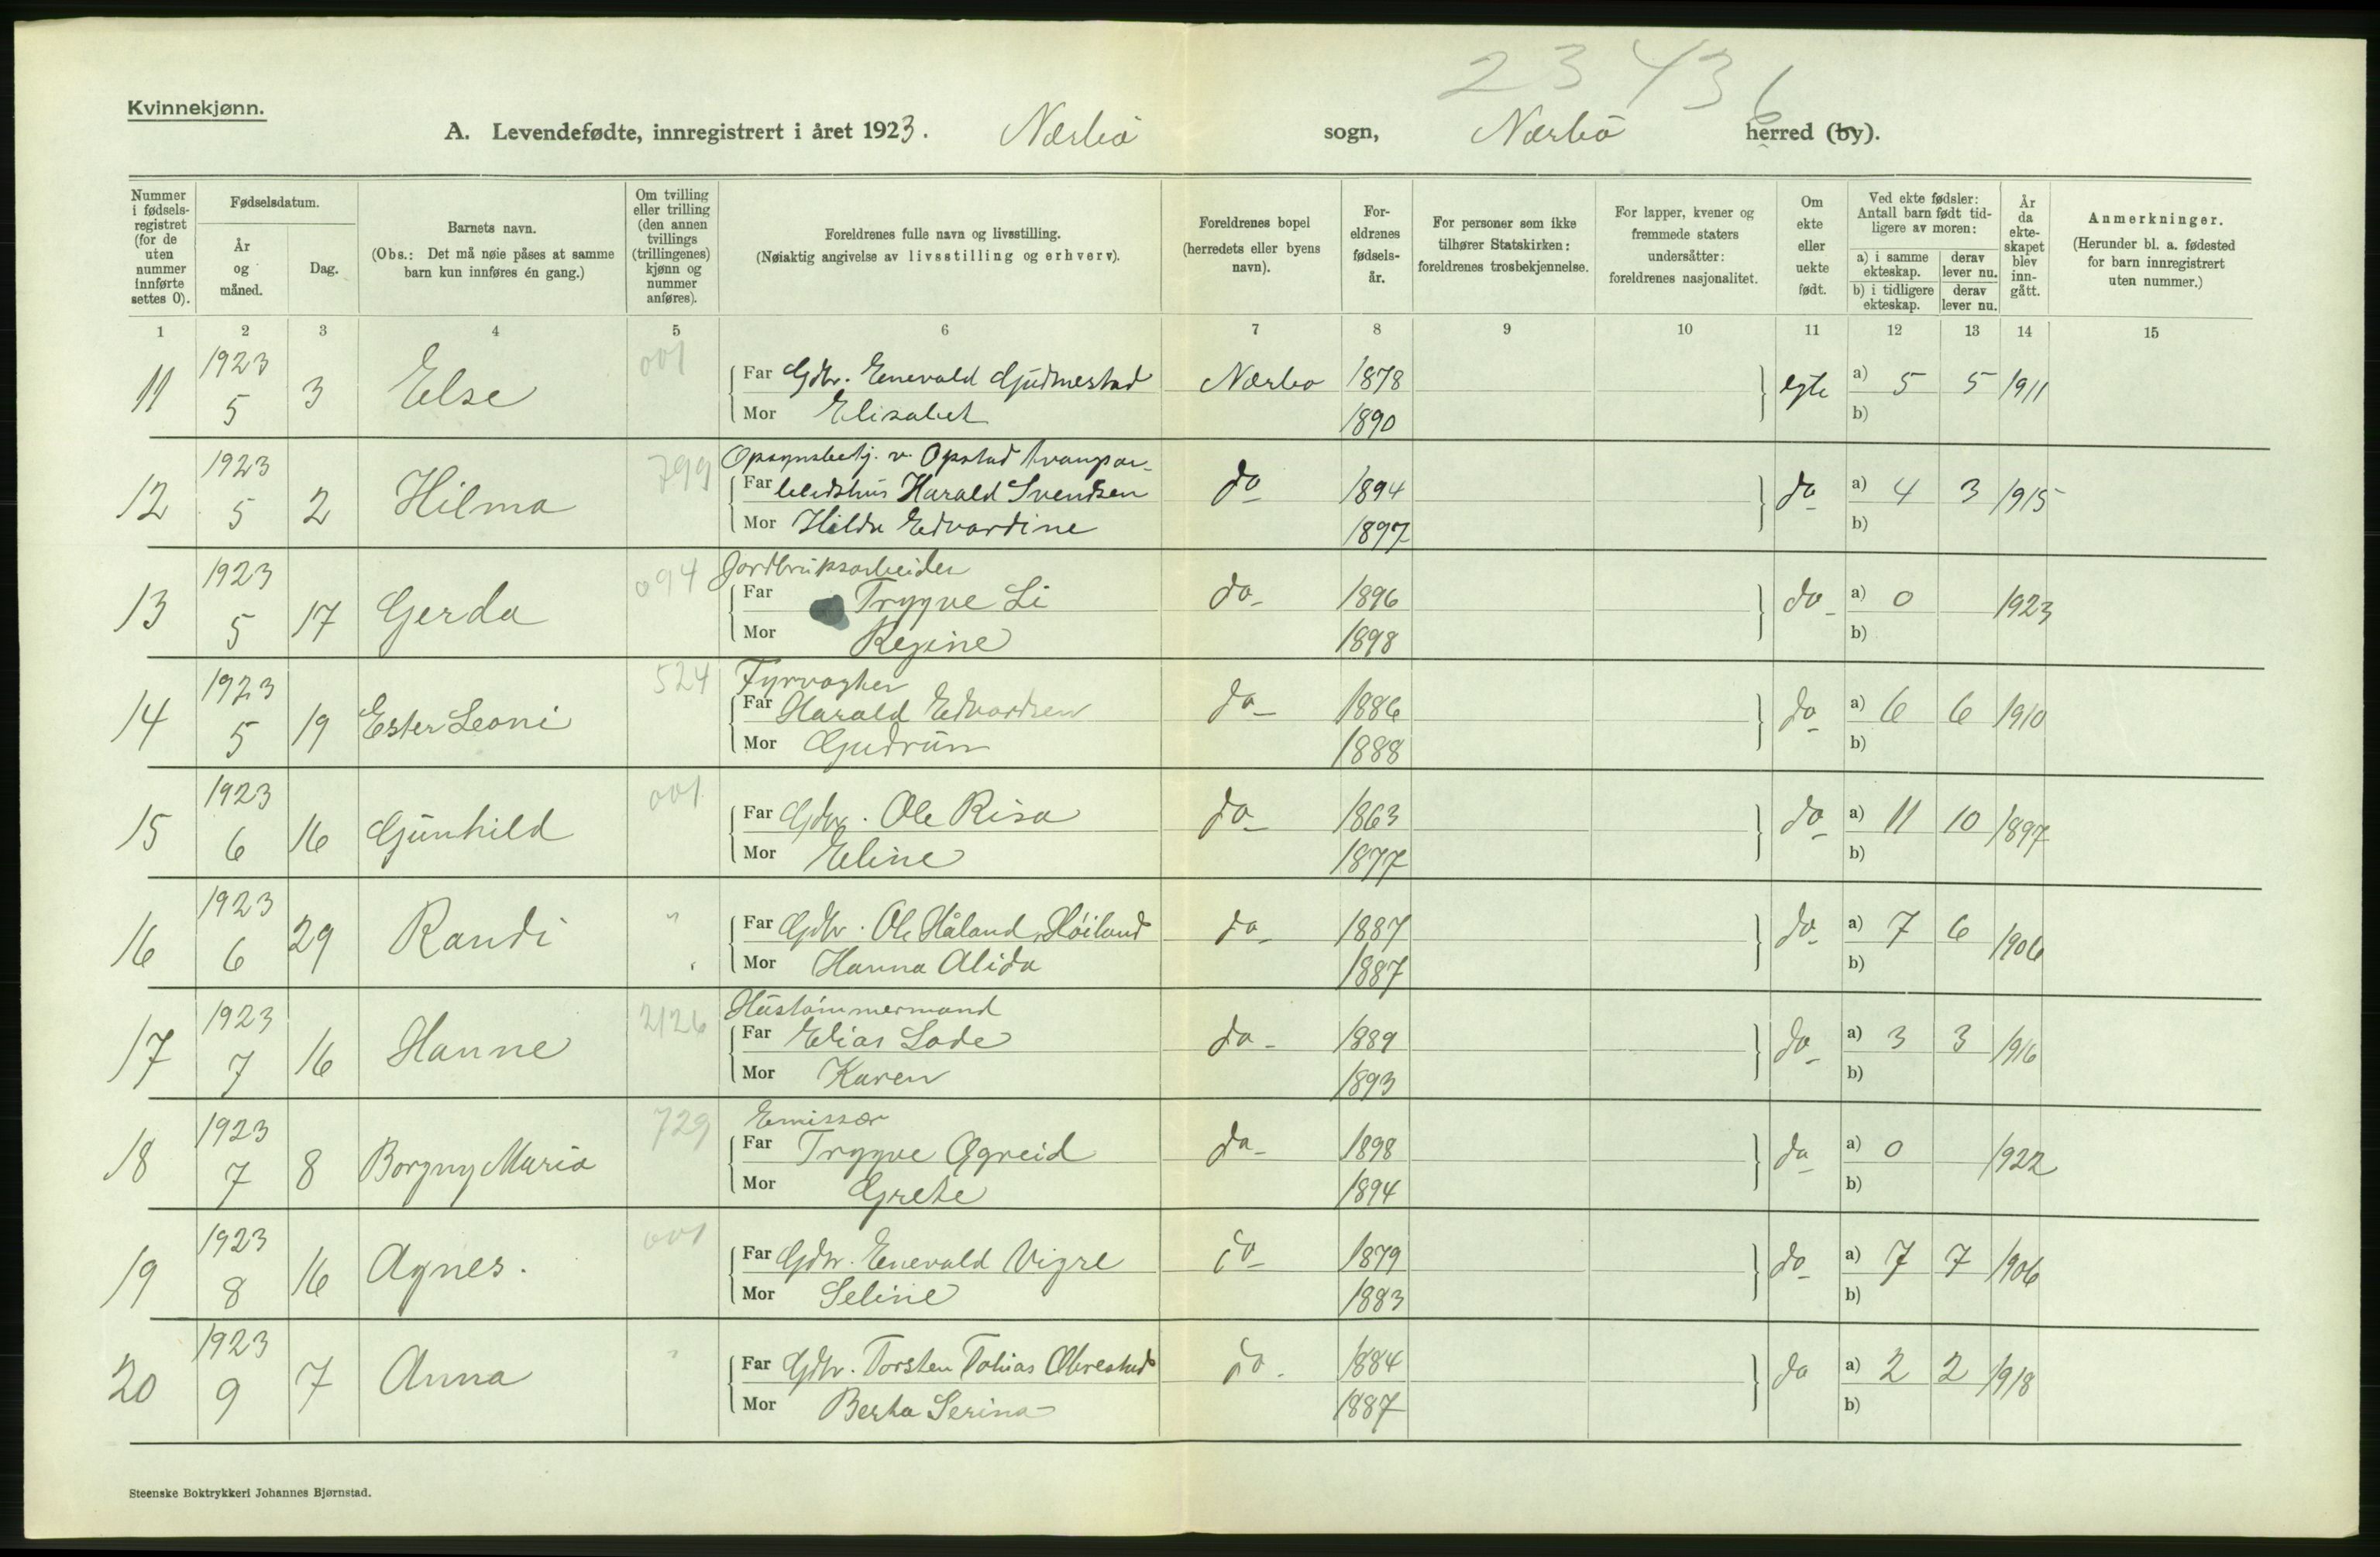 23436
Kvinnekjønn.
A. Levendefødte, innregistrert i året 1923. Nærbö sogn, Nærbö herred (by).
Nummer i fødsels-registret (for de uten nummer innførte settes 0).
Fødselsdatum.
År og måned.
Dag.
Barnets navn.
(Obs.: Det må nøie påses at samme barn kun innføres én gang.)
Om tvilling eller trilling (den annen tvillings (trillingenes) kjønn og nummer anføres).
Foreldrenes fulle navn og livsstilling.
(Nøiaktig angivelse av livsstilling og erhverv).
Foreldrenes bopel (herredets eller byens navn).
For-eldrenes fødsels-år.
For personer som ikke tilhører Statskirken: foreldrenes trosbekjennelse.
For lapper, kvener og fremmede staters undersåtter: foreldrenes nasjonalitet.
Om ekte eller uekte født.
Ved ekte fødsler: Antall barn født tid-ligere av moren:
a) i samme ekteskap. derav lever nu.
b) i tidligere ekteskap. derav lever nu.
År da ekte-skapet blev inn-gått.
Anmerkninger.
(Herunder bl. a. fødested for barn innregistrert uten nummer.)
1 2 3 4 5 6 7 8 9 10 11 12 13 14 15
11 1923 5 3 Else 001 Far Gdbr. Enevald Gudmestad Nærbo 1878 egte a) 5 5 1911
Mor Elisabet 1890 b)
Opsynsbetj. v. Opstad tvangsar-
12 1923 5 2 Hilma 799 Far beidshus Harald Svendsen do 1894 do a) 4 3 1915
Mor Hilda Edvardine 1897 b)
Jordbruksarbeider
13 1923 5 17 Gerda 094 Far Trygve Li do- 1896 do- a) 0 1923
Mor Regine 1898 b)
Fyrvogter
14 1923 5 19 Ester Leoni 524 Far Harald Edvardsen do- 1886 do a) 6 6 1910
Mor Gudrun 1888 b)
15 1923 6 16 Gunhild 001 Far Gdbr. Ole Risa do- 1863 do a) 11 10 1897
Mor Eline 1877 b)
16 1923 6 29 Randi " Far Gdbr. Ole Håland, Höiland do- 1887 do a) 7 6 1906
Mor Hanna Alida 1887 b)
Hustömmermand
17 1923 7 16 Hanne 2126 Far Elias Lode do- 1889 do a) 3 3 1916
Mor Karen 1893 b)
Emissær
18 1923 7 8 Borgny Maria 729 Far Trygve Ogreid do- 1898 do a) 0 1922
Mor Grete 1894 b)
19 1923 8 16 Agnes. 001 Far Gdbr. Enevald Vigre do- 1879 do a) 7 7 1906
Mor Seline 1883 b)
20 1923 9 7 Anna " Far Gdbr. Torsten Tobias Obrestad do- 1884 do a) 2 2 1918
Mor Berta Serina 1887 b)
Steenske Boktrykkeri Johannes Bjørnstad.